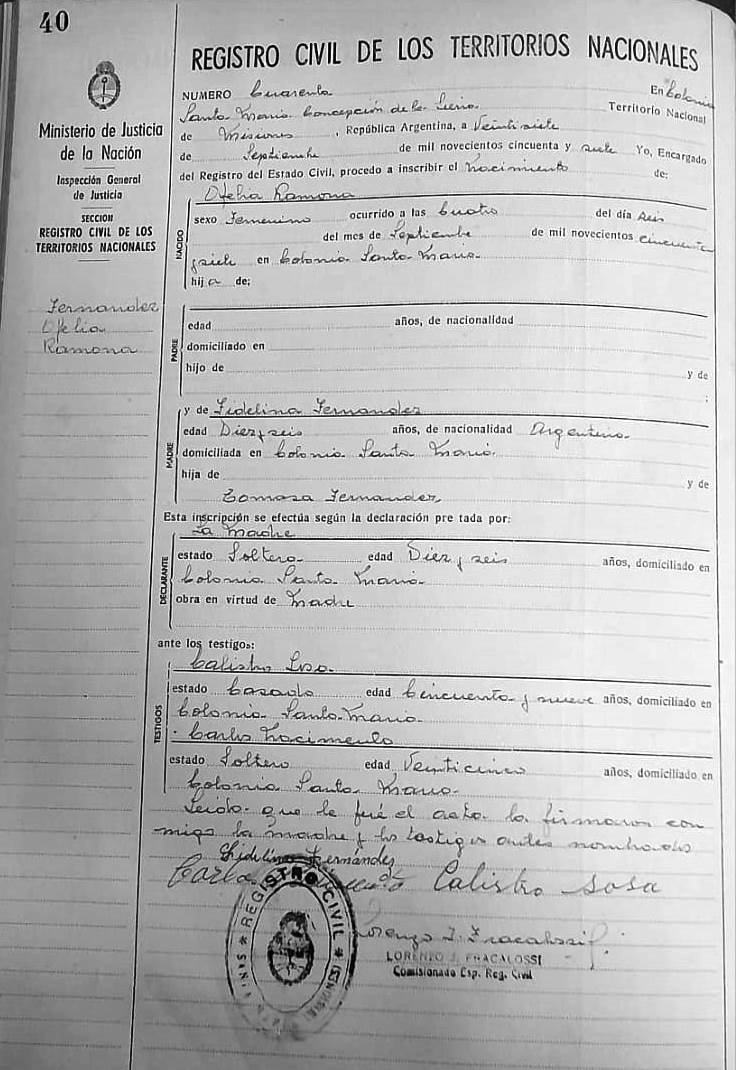 40
REGISTRO CIVIL DE LOS TERRITORIOS NACIONALES
Ministerio de Justicia
de la Nación
Inspección General
de Justicia
SECCION
REGISTRO CIVIL DE LOS
TERRITORIOS NACIONALES
Fernandez
Ofelia
Ramona
NUMERO Cuarenta En Colonia
Santa Maria Concepción de la Sierra Territorio Nacional
de Misiones, República Argentina, a Veintisiete
de Septiembre de mil novecientos cincuenta y siete Yo, Encargado
del Registro del Estado Civil, procedo a inscribir el Nacimiento de:
Ofelia Ramona
NACIDO
sexo Femenino ocurrido a las Cuatro del día seis
del mes de Septiembre de mil novecientos cincuenta
y siete en Colonia Santa Maria
hija de:
PADRE
edad años, de nacionalidad
domiciliado en
hijo de y de
;
MADRE
y de Fidelina Fernandez
edad Diez y seis años, de nacionalidad Argentina
domiciliada en Colonia Santa Maria
hija de y de
Tomasa Fernandez
Esta inscripción se efectúa según la declaración pre tada por:
La Madre
DECLARANTE
estado Soltera edad Diez y seis años, domiciliado en
Colonia Santa Maria
obra en virtud de Madre
ante los testigos:
Calistro Sosa
TESTIGOS
estado Casado edad Cincuenta y nueve años, domiciliado en
Colonia Santa Maria
Carlos Nacimento
estado Soltero edad Veinticinco años, domiciliado en
Colonia Santa Maria
Leida que le fué el acta la firmaron con
migo la madre y los testigos antes nombrados
Fidelina Fernández
Carlos Calistro Sosa
Lorenzo J. Fracalossi
LORENZO J. FRACALOSSI
Comisionado Esp. Reg. Civil
REGISTRO CIVIL